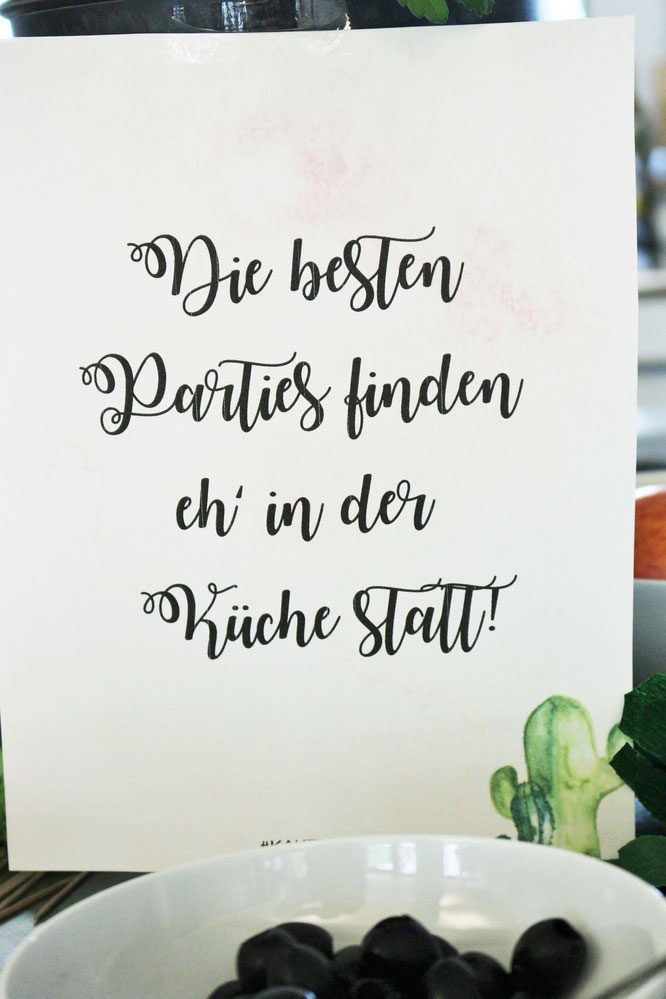 Die besten
Parties finden
eh' in der
Küche statt!